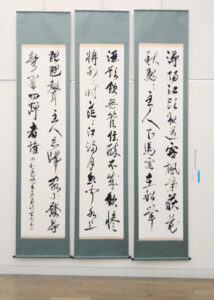 潯陽江頭夜送客楓葉荻花
秋瑟々主人下馬客在船舉
酒欲飲無管弦醉不成歡慘
將別々時茫々江浸月忽聞水上
琵琶聲主人忘歸客不發尋
聲闇問彈者誰